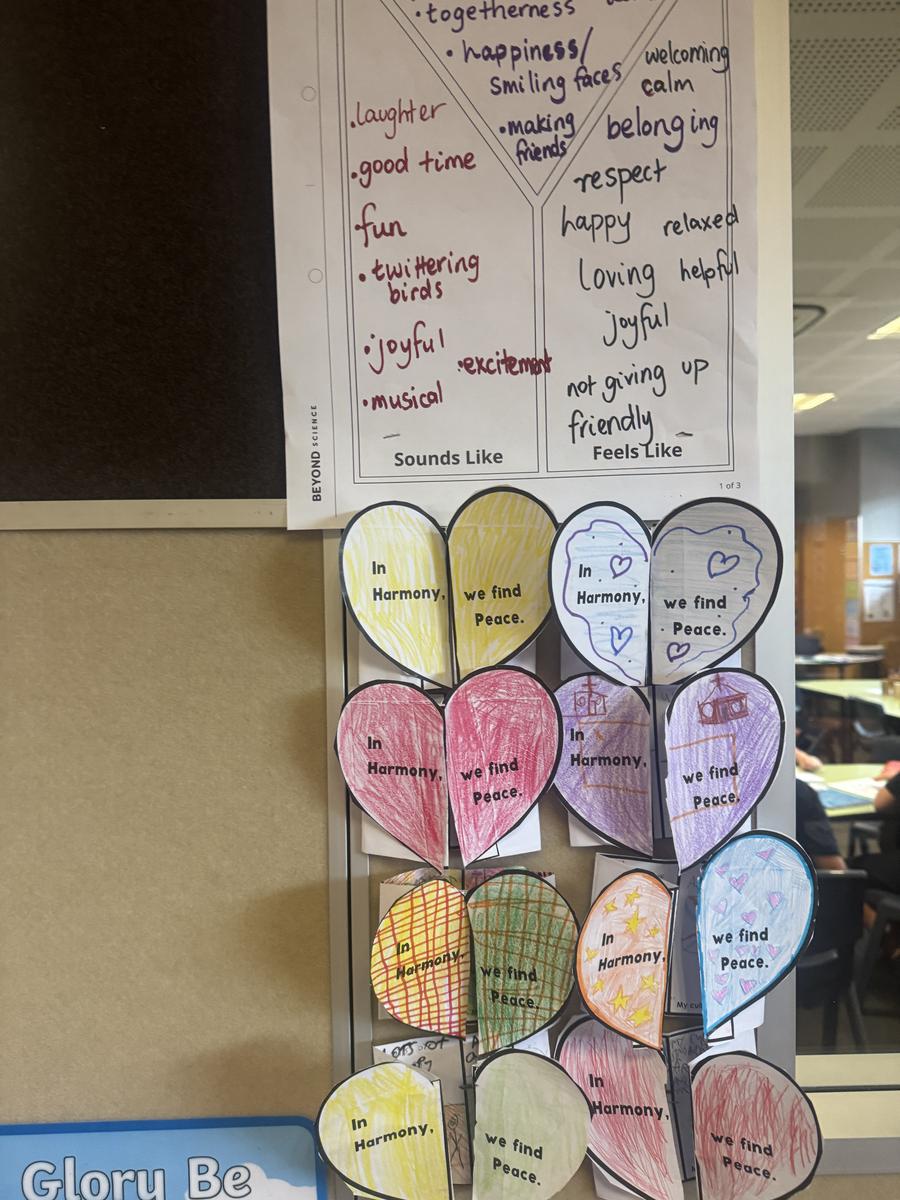 • togetherness
• happiness/
smiling faces
• making
friends
• laughter
• good time
• fun
• twittering
birds
• joyful
• excitement
• musical
Sounds Like
welcoming
calm
belonging
respect
happy relaxed
loving helpful
joyful
not giving up
friendly
Feels Like
BEYOND SCIENCE
1 of 3
In
Harmony,
we find
Peace.
In
Harmony,
we find
Peace.
In
Harmony,
we find
Peace.
In
Harmony,
we find
Peace.
In
Harmony,
we find
Peace.
In
Harmony,
we find
Peace.
My cul
In
Harmony,
we find
Peace.
In
Harmony,
we find
Peace.
Glory Be